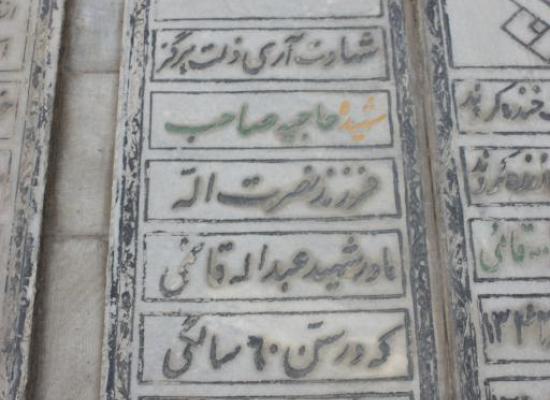 شهادت آری ذلت هرگز
شهیده حاجیه صاحب
فرزند نصرت اله
مادر شهید عبداله قائمی
که در سن ۶۰ سالگی
خنده کردند
قائمی